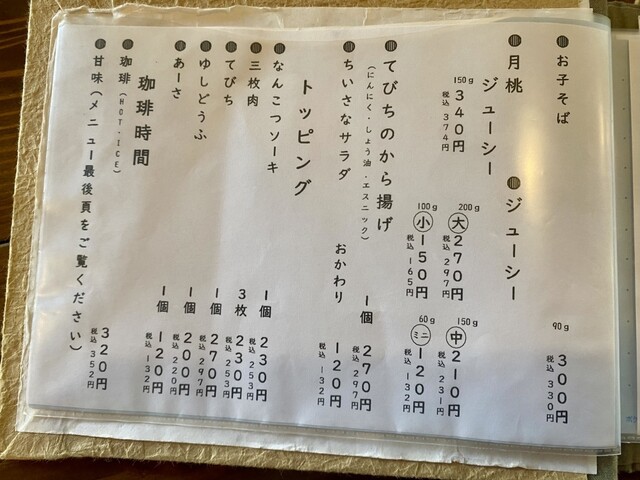 お子そば 90g 300円
税込 330円
月桃
ジューシー
150g 340円
税込 374円
ジューシー
200g 大 270円
税込 297円
150g 中 210円
税込 231円
100g 小 150円
税込 165円
60g ミニ 120円
税込 132円
てびちのから揚げ 1個 270円
(にんにく・しょう油・エスニック) 税込 297円
ちいさなサラダ おかわり 120円
税込 132円
トッピング
なんこつソーキ 1個 230円
税込 253円
三枚肉 3枚 230円
税込 253円
てびち 1個 270円
税込 297円
ゆしどうふ 1個 200円
税込 220円
あーさ 1個 120円
税込 132円
珈琲時間
珈琲(HOT・ICE) 320円
税込 352円
甘味(メニュー最後頁をご覧ください)